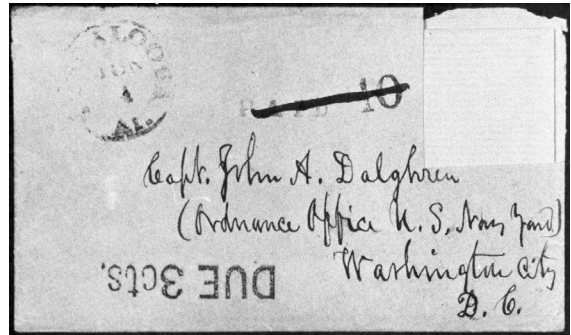 JUN
4
AL.
PAID 10
Capt. John A. Dalghren
(Ordnance Office U. S. Navy Yard)
Washington City
D. C.
DUE 3cts.